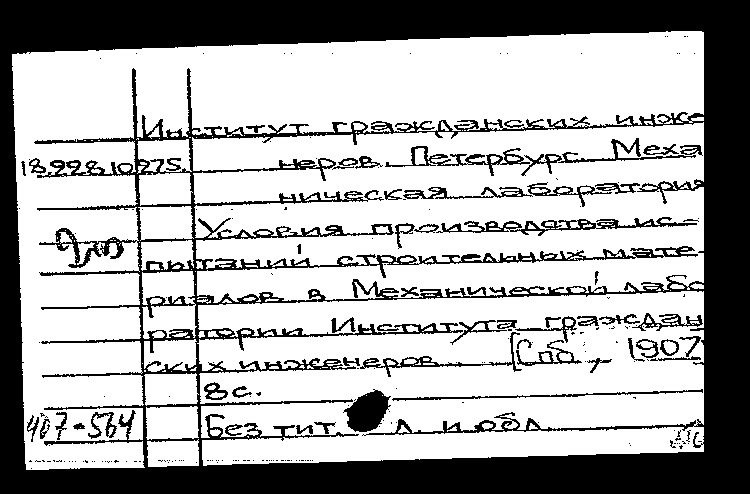 Институт гражданских инже
18.228.10.275. неров. Петербург. Меха
ническая лаборатория
Условия производства ис-
пытаний строительных мате-
риалов в Механической лабо
ратории Института граждан
ских инженеров [Спб, 1907
8 с.
407-564 Без тит. л. и обл.